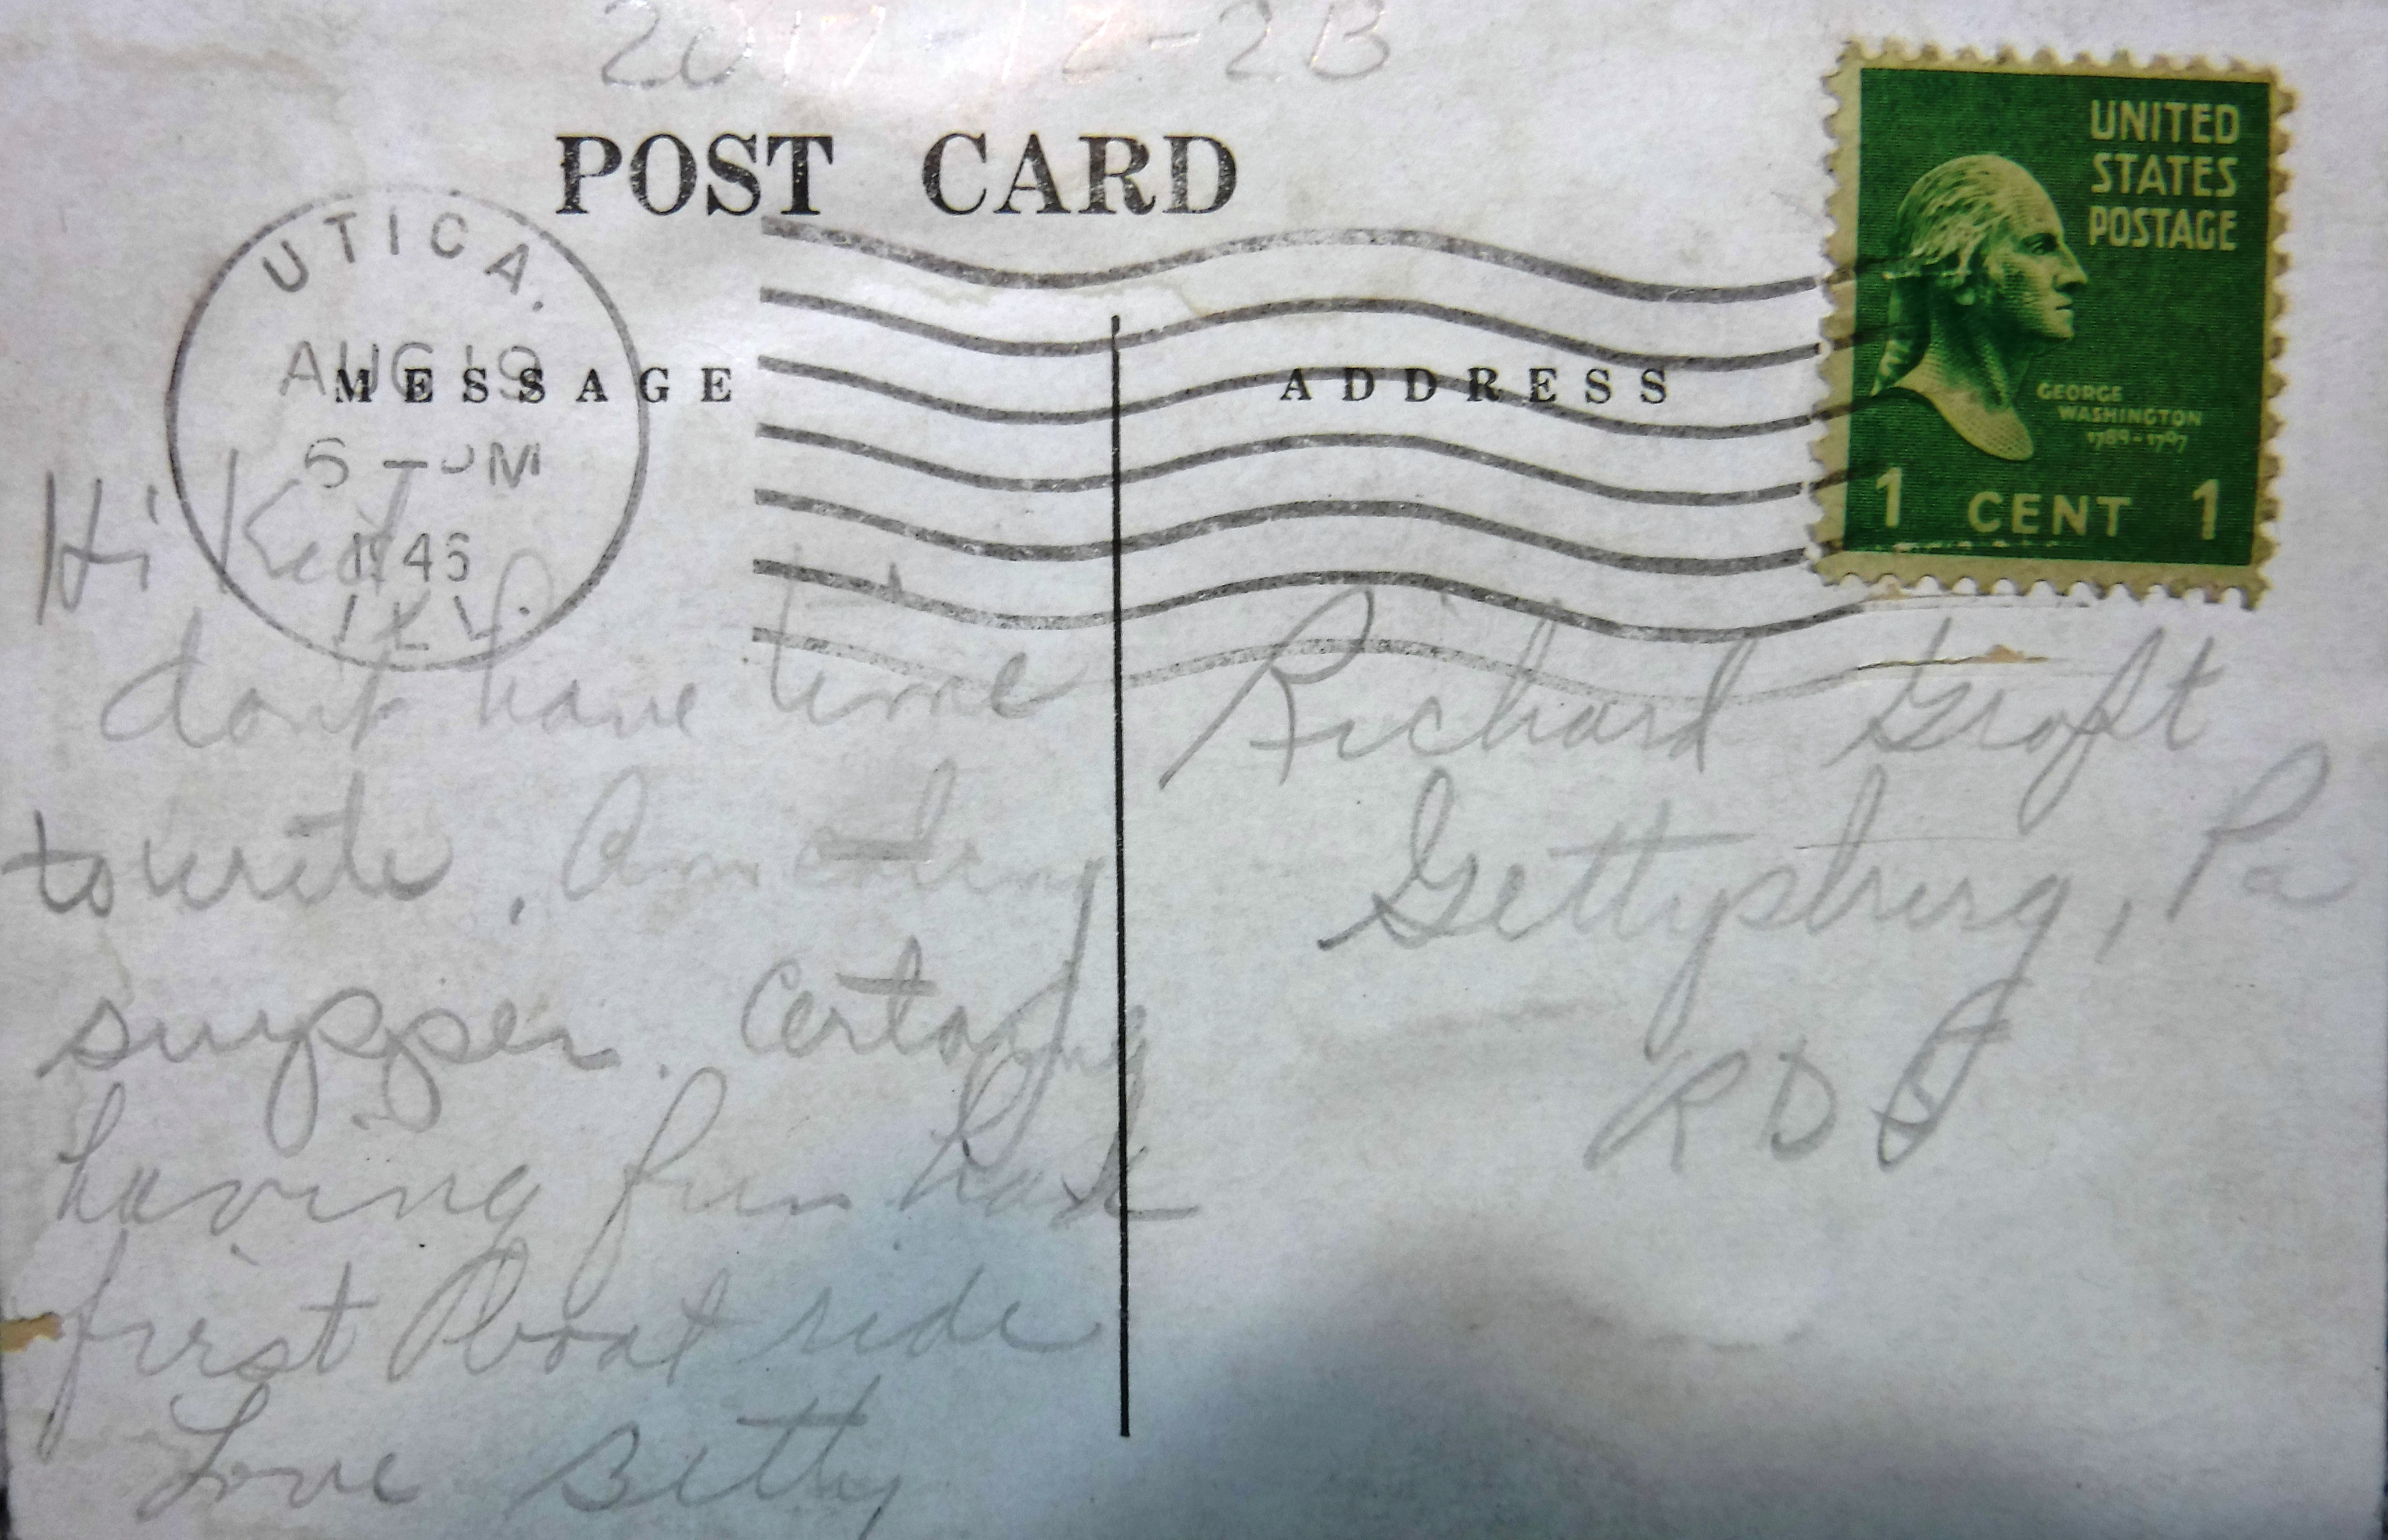 2017-12-2B
POST CARD
UTICA.
AUG 19
6 - PM
1946
ILL.
MESSAGE
ADDRESS
UNITED
STATES
POSTAGE
GEORGE
WASHINGTON
1789-1797
1 CENT 1
Hi Kid
dont have time
to write. Am
supper. Certainly
having fun had
first boat ride
Love Betty
Richard Groft
Gettysburg, Pa
RD 5